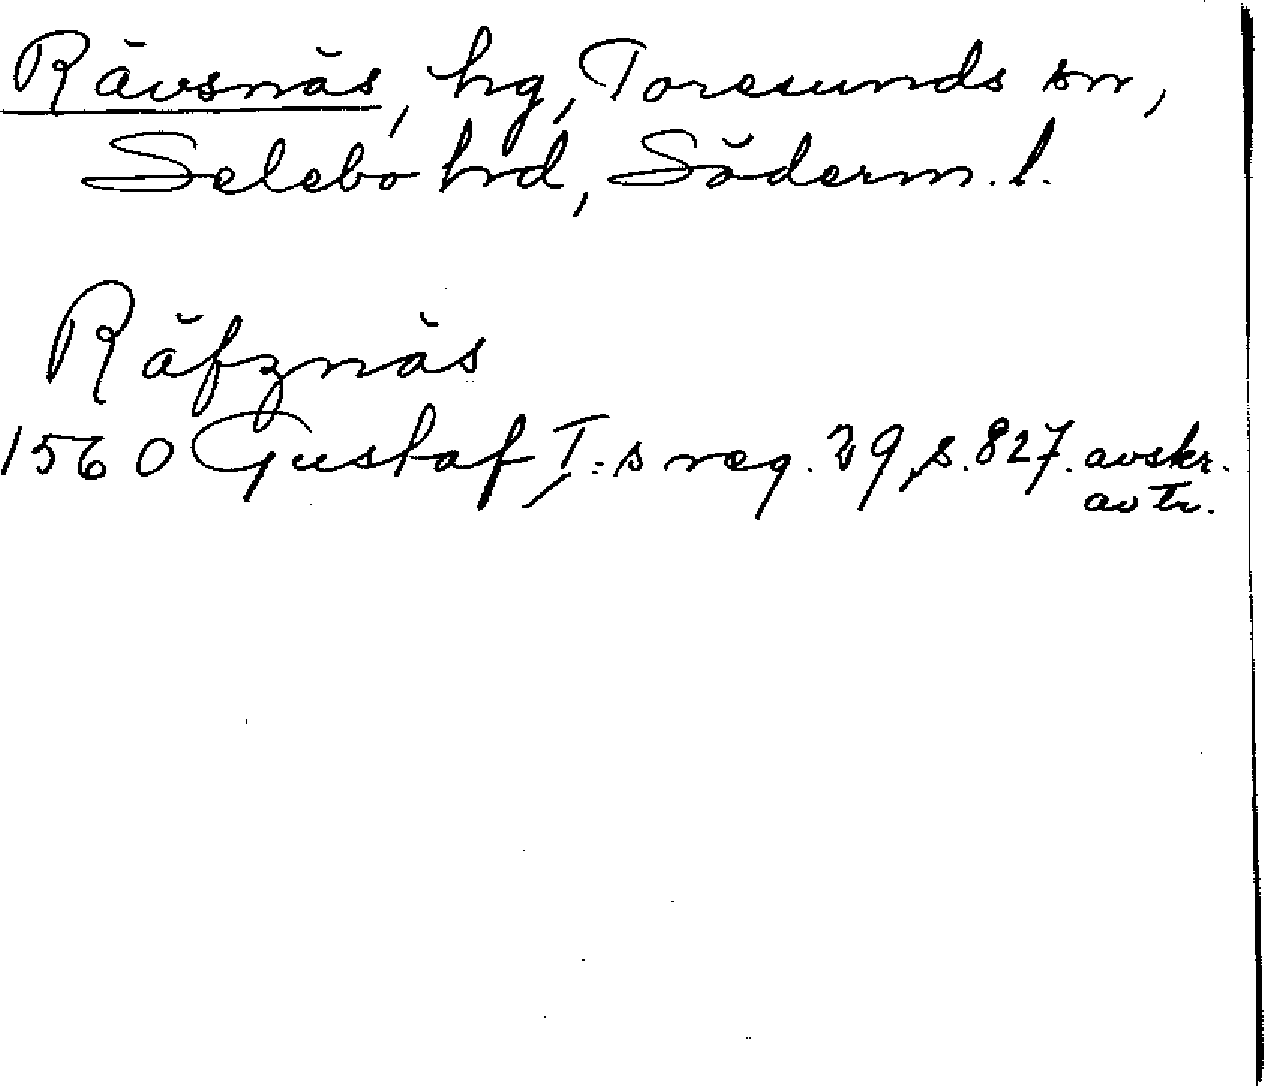 Rävsnäs, hg, Toresunds sn,
Selebo hrd, Söderm. l.
Räfznäs
1560 Gustaf I:s reg. 29, s. 827. avskr.
av tr.